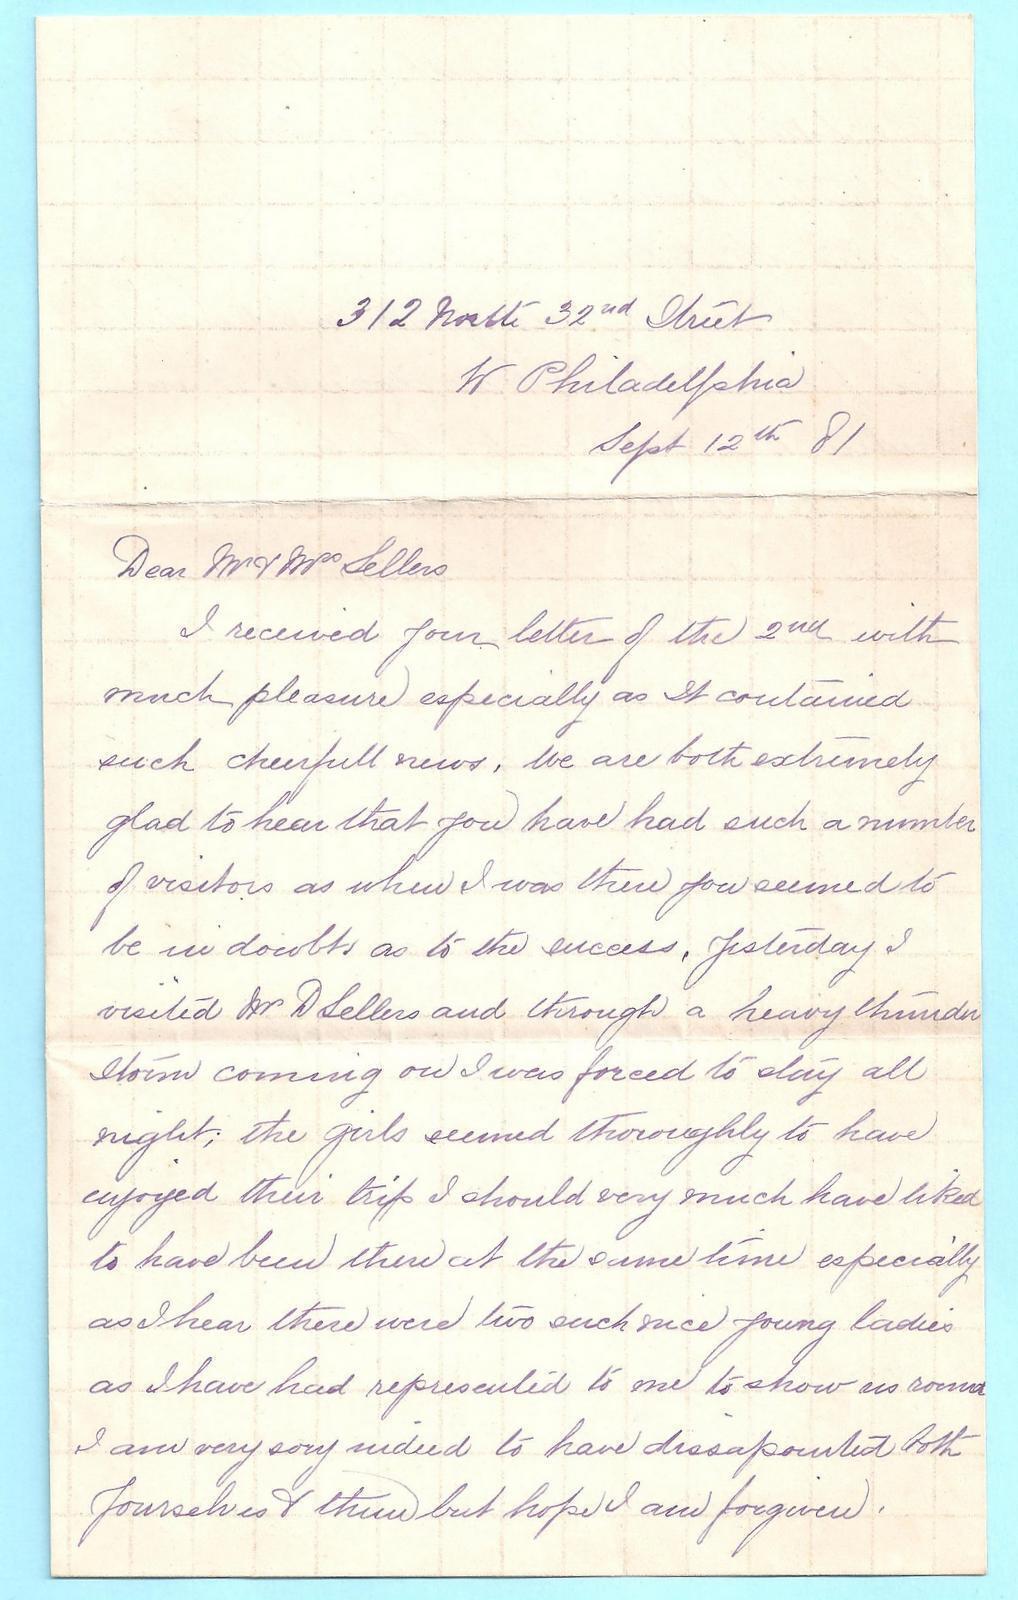 312 North 32nd Street
W Philadelphia
Sept 12th 81
Dear Mr & Mrs Sellers
I received your letter of the 2nd with
much pleasure especially as It contained
such cheerfull news, We are both extremely
glad to hear that you have had such a number
of visitors as when I was there you seemed to
be in doubts as to the success, Yesterday I
visited Mr D Sellers and through a heavy thunder
storm coming on I was forced to stay all
night; the girls seemed thoroughly to have
enjoyed their trip I should very much have liked
to have been there at the same time especially
as I hear there were two such nice young ladies
as I have had represented to me to show us round
I am very sory indeed to have dissapointed both
Yourselves & them but hope I am forgiven.